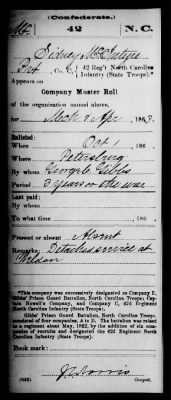 (Confederate.)
Mc 42 N.C.
Sidney McIntyre
Pvt, Co. C, 42 Reg't North Carolina
Infantry (State Troops).*
Appears on
Company Muster Roll
of the organization named above,
for Mch & Apr, 1863.
Enlisted:
When Oct 1, 186
Where Petersburg
By George Gibbs
Period 3 years or the war
Last paid:
By
To what time , 186
Present or absent Absent
Remarks: Detached service at
Weldon
*This company was successively designated as Company B,
Gibbs' Prison Guard Battalion, North Carolina Troops; Cap-
tain Howell's Company, and Company C, 42d Regiment
North Carolina Infantry (State Troops).
Gibbs' Prison Guard Battalion, North Carolina Troops,
consisted of four companies, A to D. The battalion was raised
to a regiment about May, 1862, by the addition of six com-
panies of recruits and designated the 42d Regiment North
Carolina Infantry (State Troops).
Book mark:
(642)
Copyist.